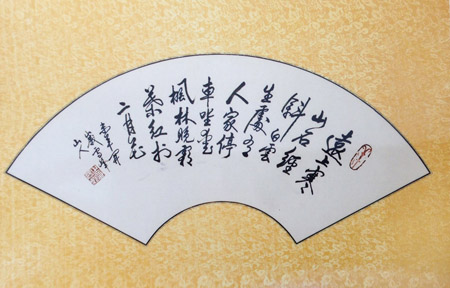 遠上寒
山石徑
斜白雲
生處有
人家停
車坐愛
楓林晚霜
葉紅於
二月花
山人